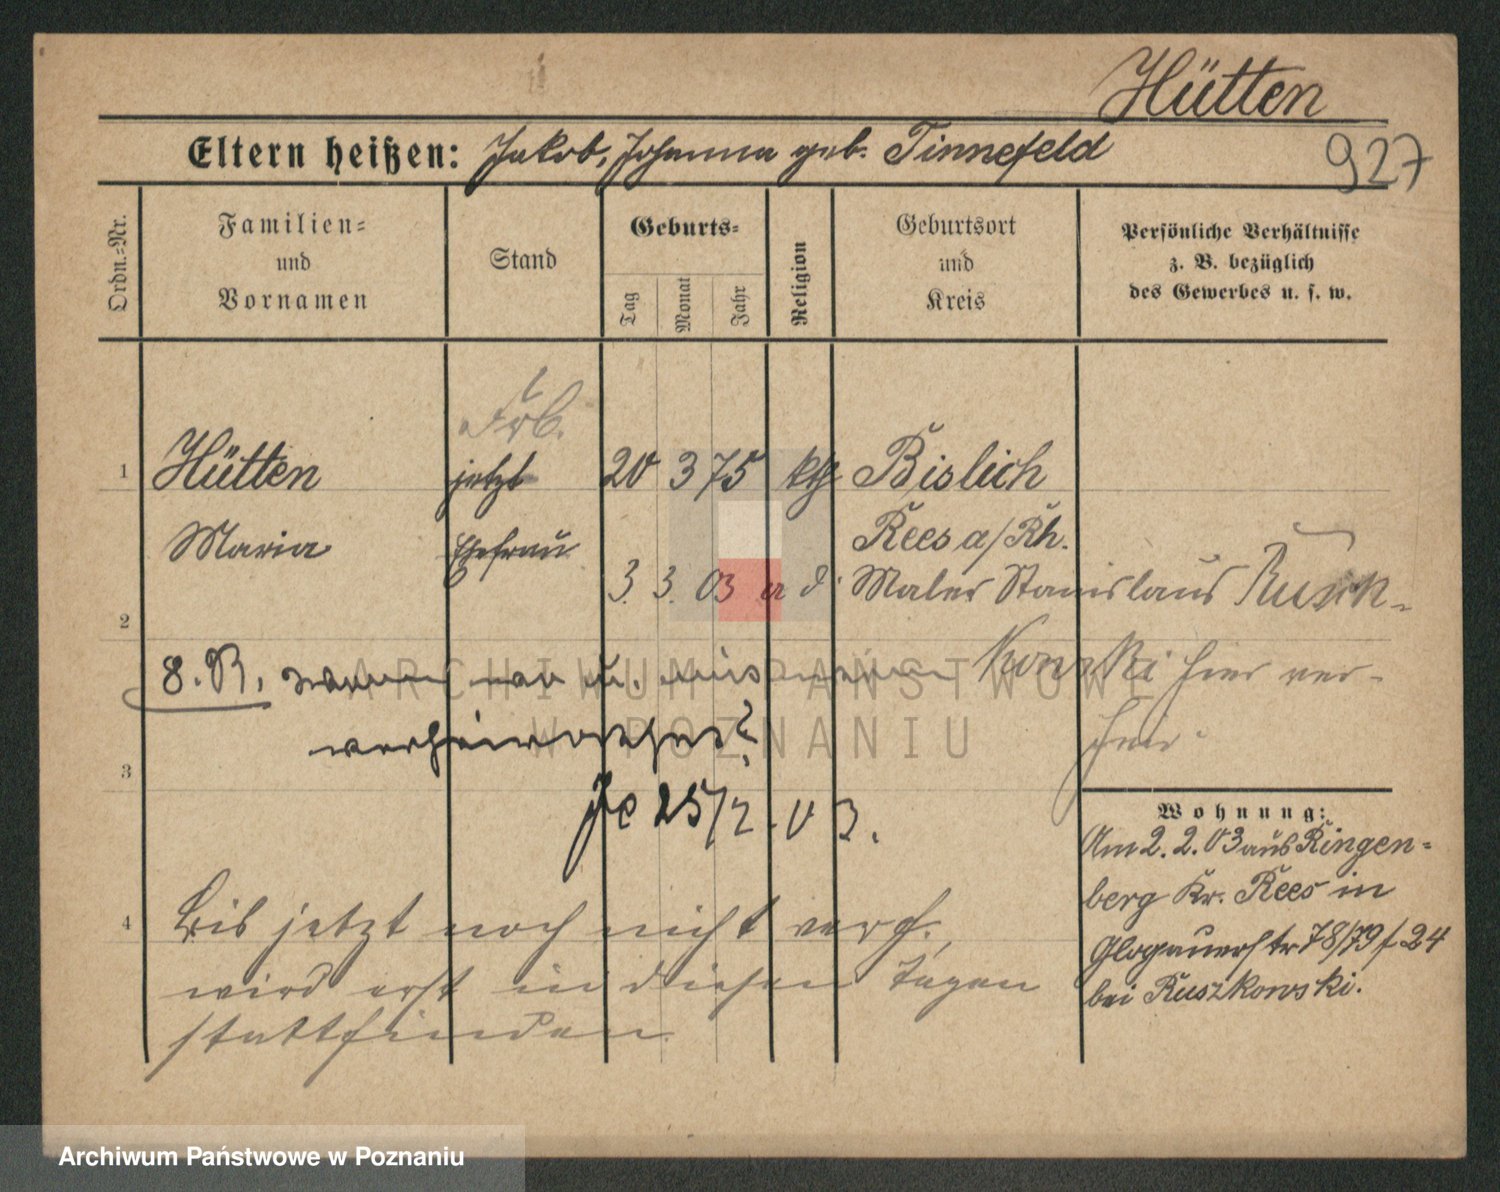 Hütten
927
Eltern heißen: Jakob, Johanna geb. Tinnefeld
Ordn.=Nr.
Familien=
und
Vornamen
Stand
Geburts=
Tag
Monat
Jahr
Religion
Geburtsort
und
Kreis
Persönliche Verhältnisse
z. B. bezüglich
des Gewerbes u. s. w.
1 Hütten jetzt 20 3 75 kth Bislich
Maria Ehefrau Rees a/Rh.
3. 3. 03 d. Maler Stanislaus Rusz-
2
kowski hier ver-
8. R. wann u.
verheirathet?
3
25/2. 03.
Wohnung:
Am 2. 2. 03 aus Ringen-
berg Kr. Rees in
Glogauerstr 78/79 f 24
bei Ruszkowski.
4 Bis jetzt noch nicht verh.,
wird erst in diesen Tagen
stattfinden.
ARCHIWUM PAŃSTWOWE
W POZNANIU
Archiwum Państwowe w Poznaniu